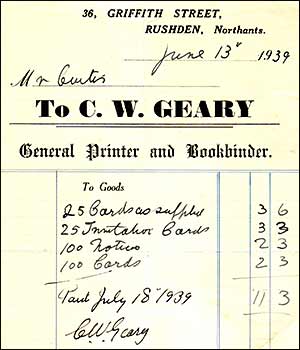 36, GRIFFITH STREET,
RUSHDEN, Northants.
June 13" 1939
Mr Curtis
To C. W. GEARY
General Printer and Bookbinder.
To Goods
25 Cards as supplied 3 6
25 Invitation Cards 3 3
100 Notices 2 3
100 Cards 2 3
Paid July 18" 1939 11 3
C.W. Geary